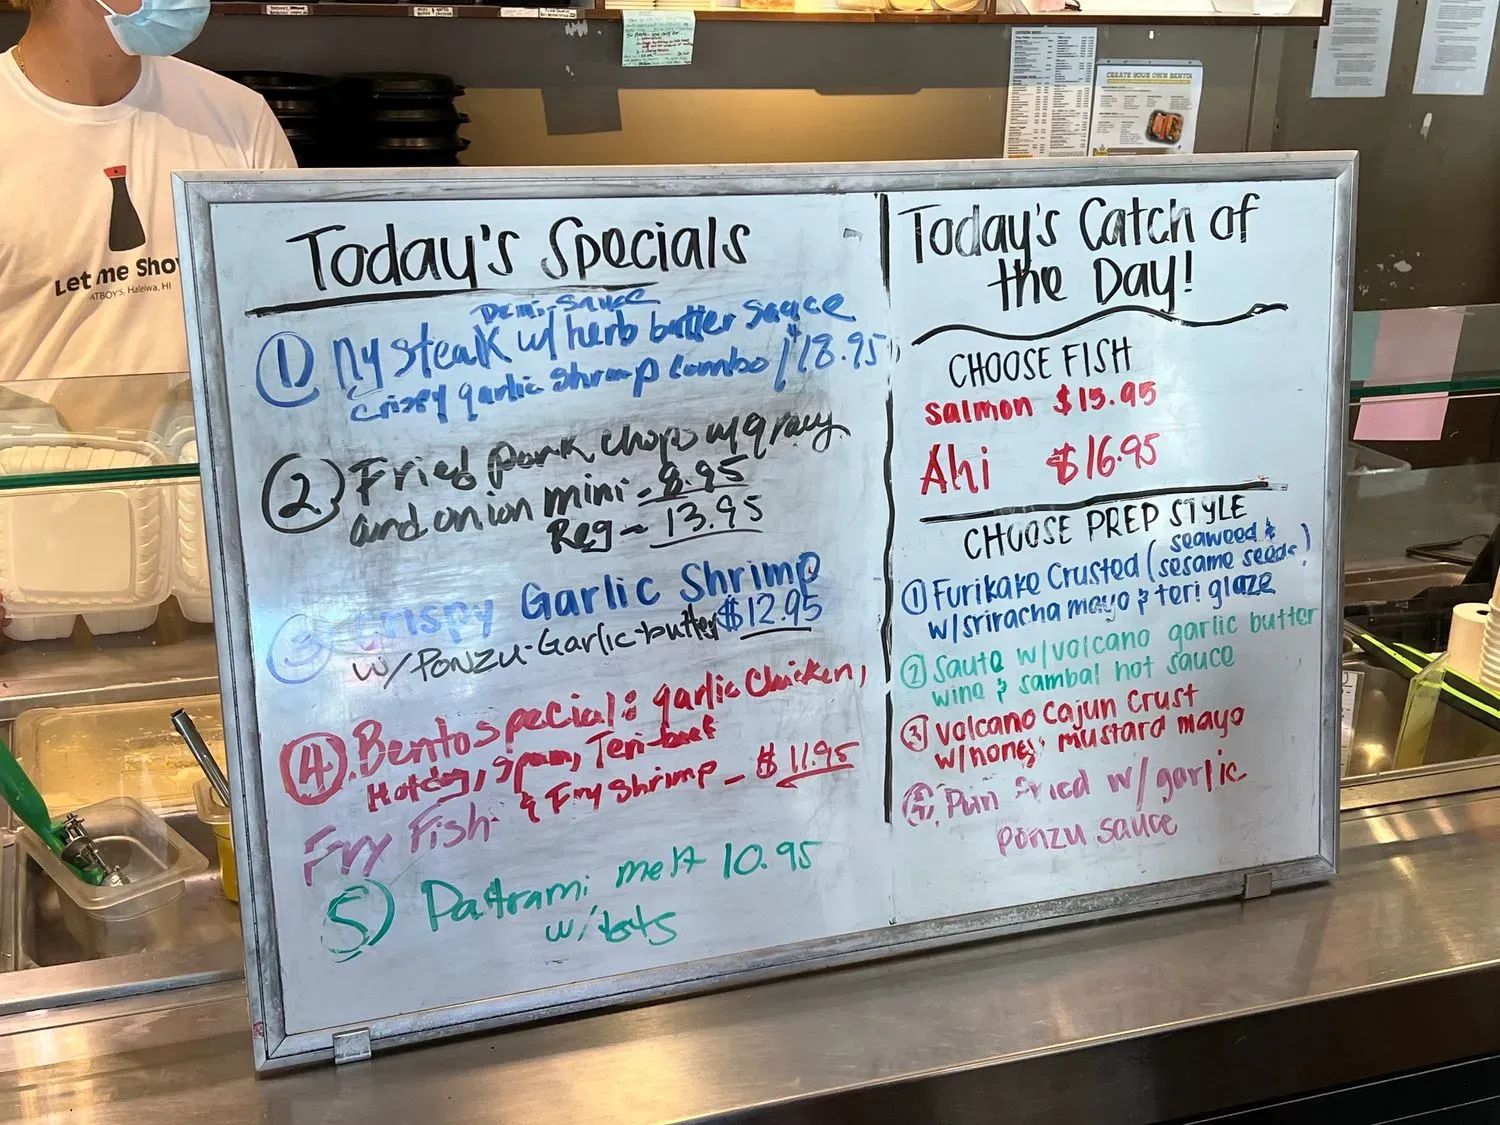 Let me Sho
ATBOY'S, Haleiwa, HI
CREATE YOUR OWN BENTO!
Today's Specials
Demi-Sauce
① Ny Steak w/ herb butter sauce
crispy garlic shrimp combo / $18.95
② Fried pork chops w/ gravy
and onion mini - 8.95
Reg - 13.95
③ Crispy Garlic Shrimp
w/Ponzu-Garlic-butter $12.95
④. Bento special: garlic Chicken,
Hotdog, spam, Teri-beef
Fry Fish & Fry shrimp - $11.95
5) Pastrami melt 10.95
w/ tots
Today's Catch of
the Day!
CHOOSE FISH
Salmon $15.95
Ahi $16.95
CHOOSE PREP STYLE
① Furikake Crusted (seaweed & sesame seeds)
w/sriracha mayo & teri glaze
② Saute w/volcano garlic butter
wine & sambal hot sauce
③ Volcano Cajun Crust
w/honey mustard mayo
④. Pan fried w/ garlic
ponzu sauce